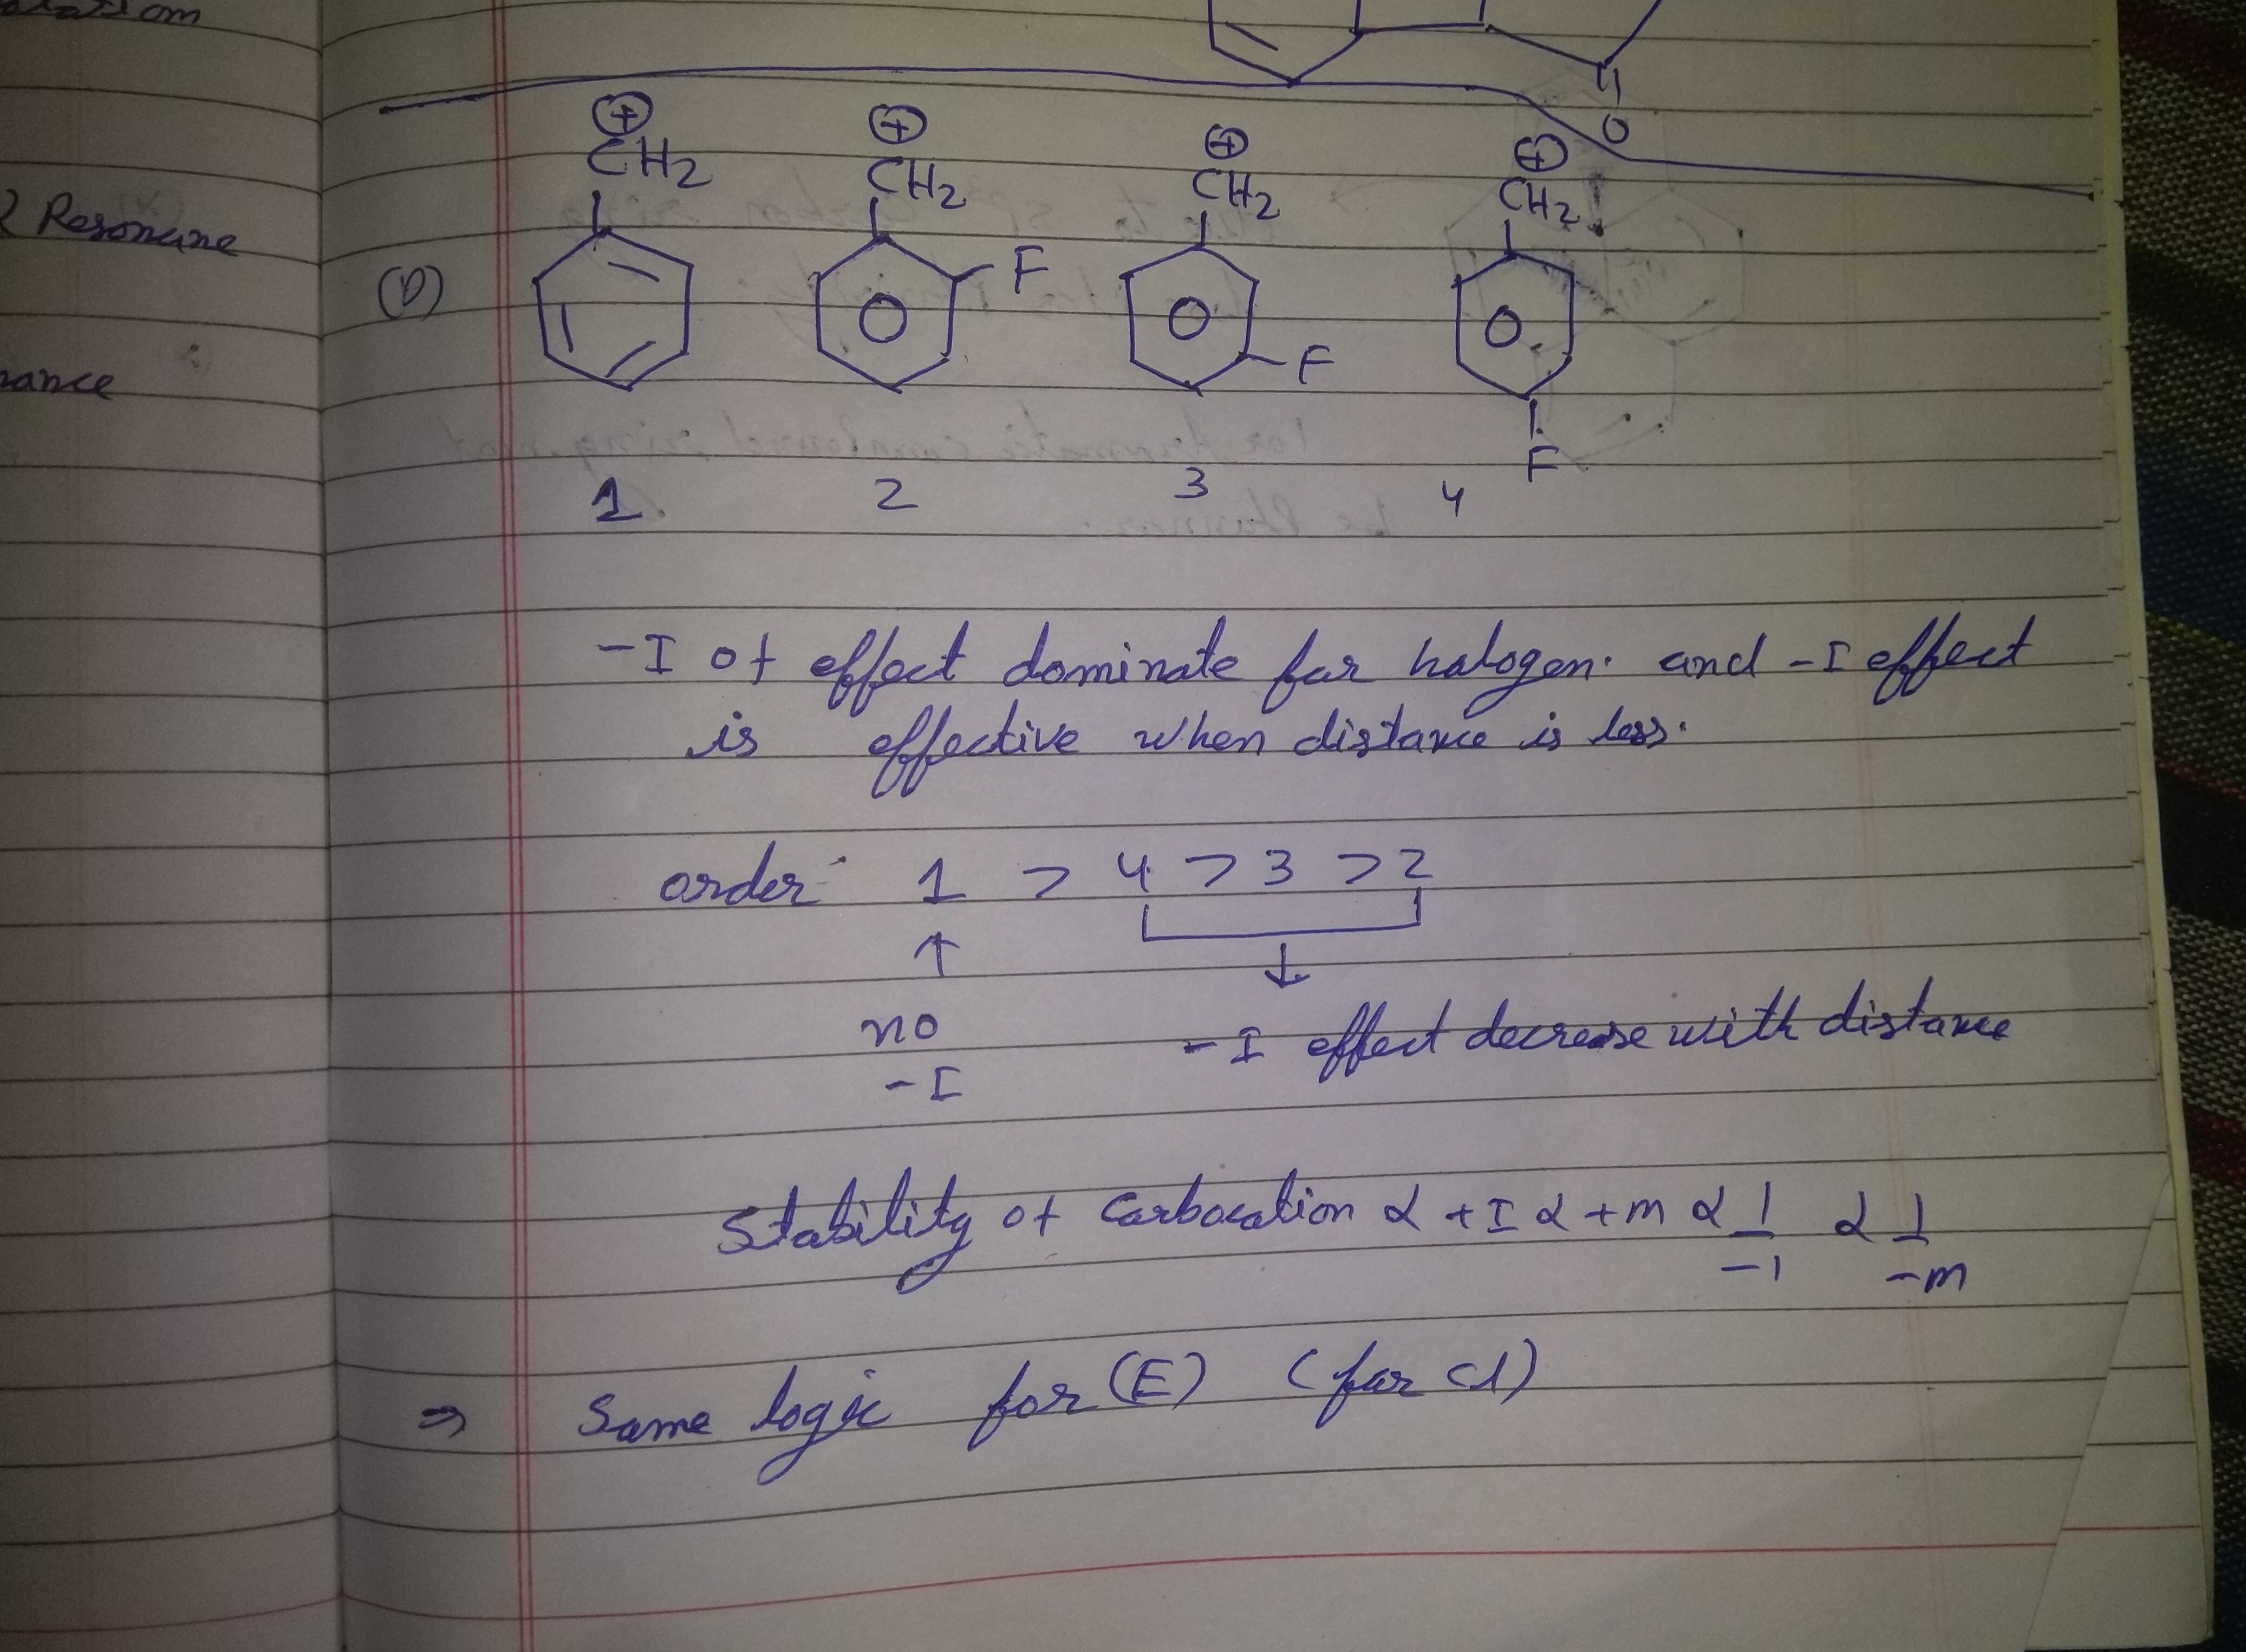 Resonane
O
⊕ ⊕ ⊕ ⊕
CH2 CH2 CH2 CH2
(D) F F F
1 2 3 4
-I of effect dominate for halogen. and -I effect
is effective when distance is less.
order 1 > 4 > 3 > 2
↑ ↓
no -I effect decrease with distance
-I
Stability of Carbocation α +I α +m α 1/-I α 1/-m
⇒ Same logic for (E) (for Cl)